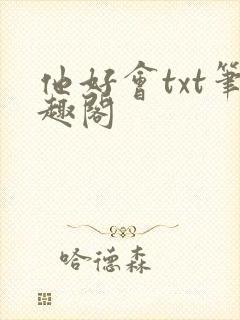 他好會txt筆
趣閣
哈德森